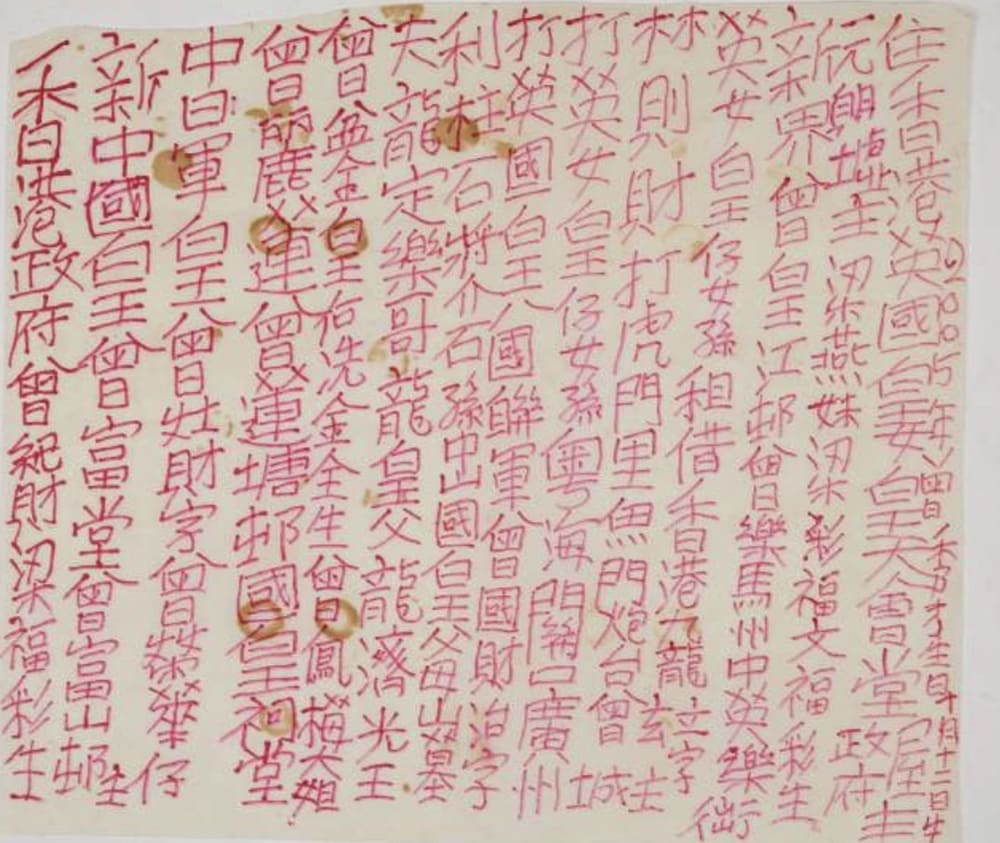 2005年曾秀才生日十月十二日生
住香港英國皇妻皇大會堂屋主
元朗坳主梁燕妹梁彩福文福彩生政府
新界曾皇江邨曾樂馬州中英樂街
英女皇仔女孫租借香港九龍立字
林則財打虎門里魚門炮台曾玄主
打英女皇仔女孫粵海關口廣州城
打英國皇八國聯軍曾國財治字
利柱石將介石孫中山國皇父母山墓
夫龍定樂哥龍皇父龍濟光王
曾盆金皇后冼金全生曾鳳梅大姐
曾麗蓮曾蓮塘邨國皇祠堂
中日軍皇曾灶財字曾榮華仔
新中國皇曾富堂曾富山邨生
香港政府曾紀財梁福彩生